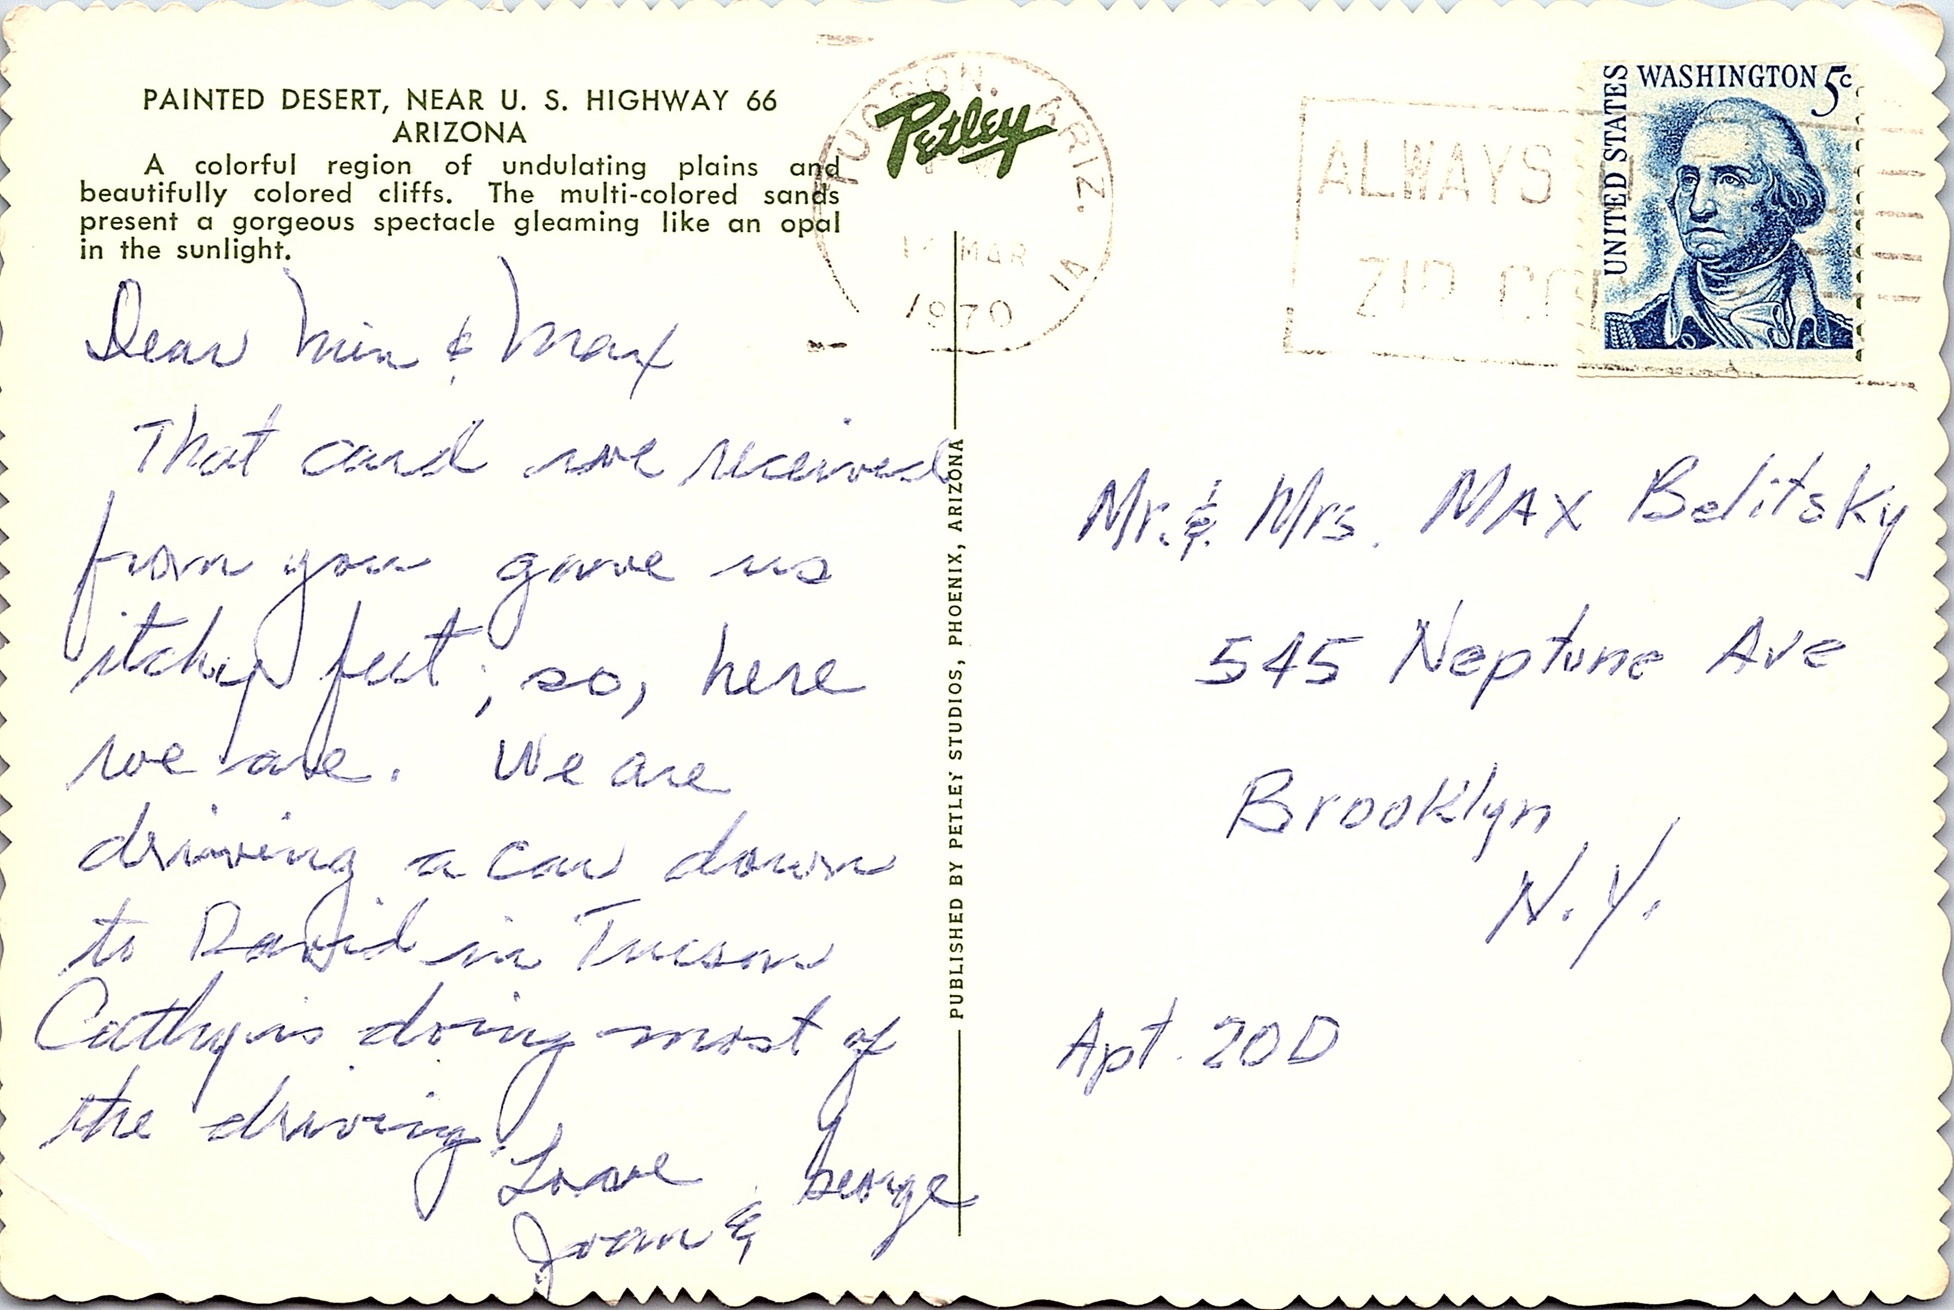 PAINTED DESERT, NEAR U. S. HIGHWAY 66
ARIZONA
A colorful region of undulating plains and
beautifully colored cliffs. The multi-colored sands
present a gorgeous spectacle gleaming like an opal
in the sunlight.
Dear Min & Max
That card we received
from you gave us
itchy feet; so, here
we are. We are
driving a car down
to David in Tucson
Cathy is doing most of
the driving.
Love
Joan & George
Petley
TUCSON, ARIZ.
MAR
1A
1970
PUBLISHED BY PETLEY STUDIOS, PHOENIX, ARIZONA
ALWAYS
ZIP CO
UNITED STATES
WASHINGTON 5c
Mr. & Mrs. MAX Belitsky
545 Neptune Ave
Brooklyn
N.Y.
Apt. 20D